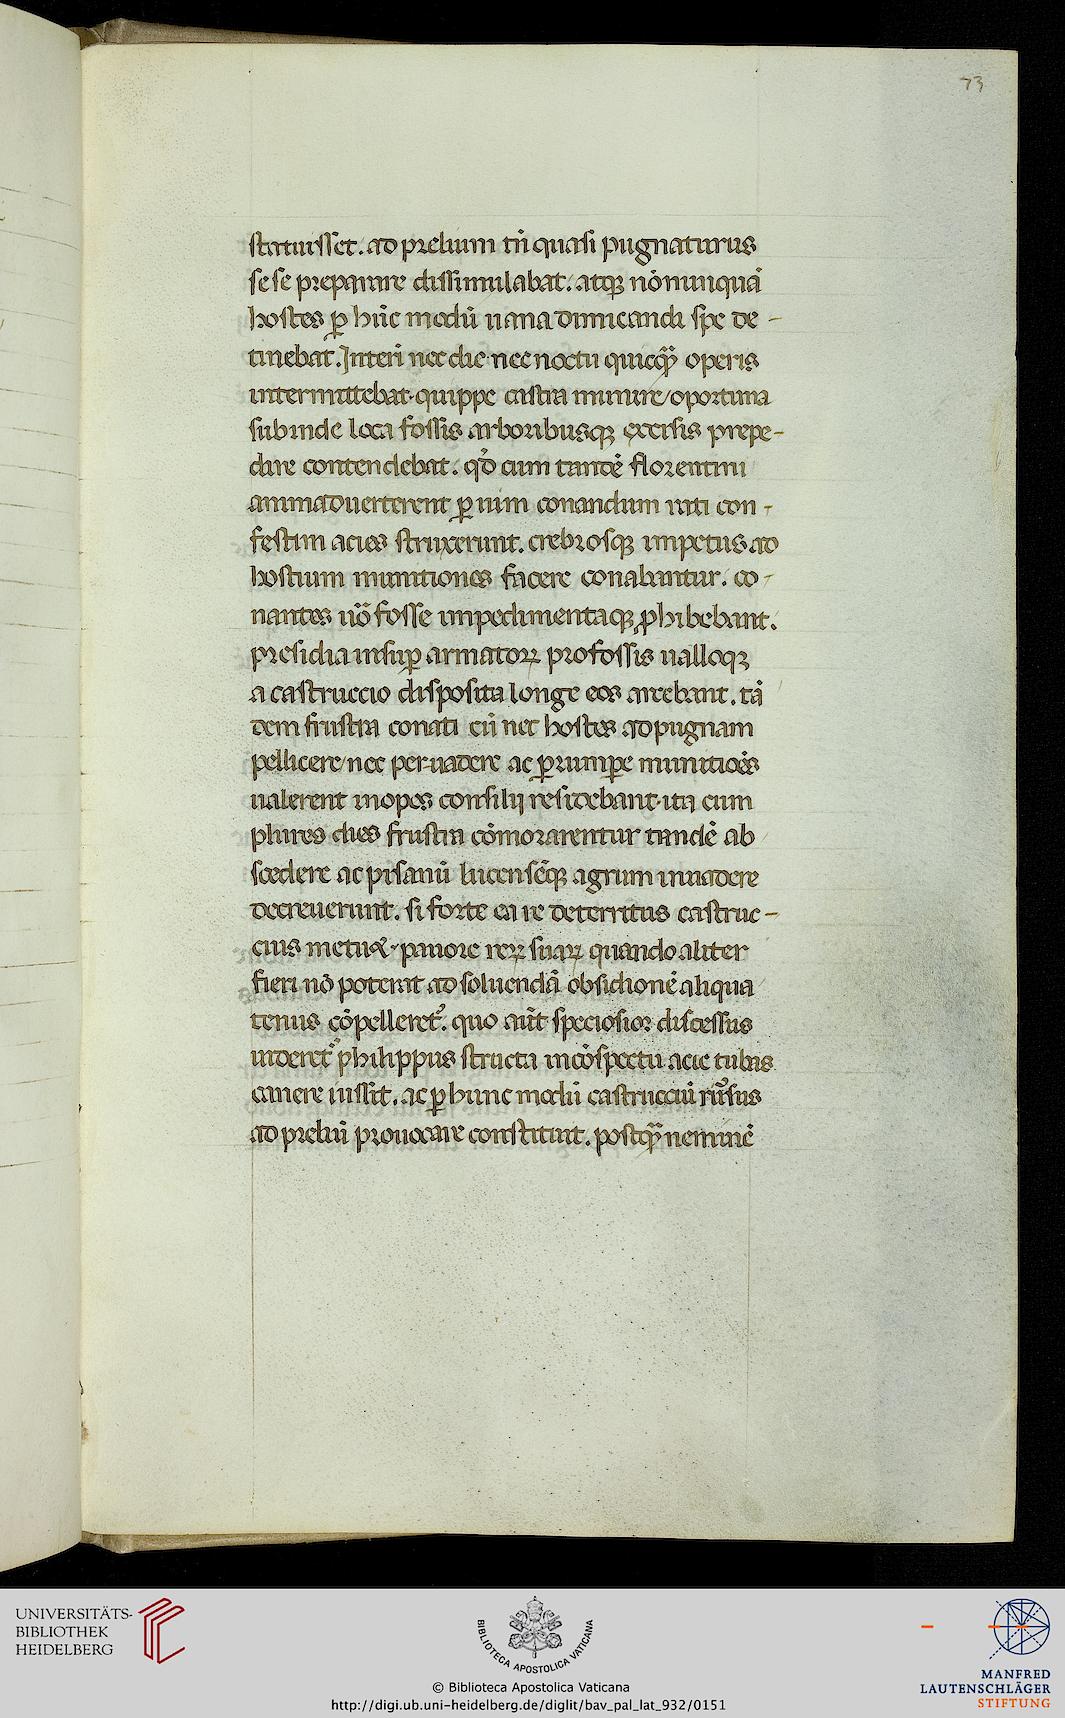 73
statuisset. ad prelium tñ quasi pugnaturus
se se preparare dissimulabat. atqꝫ nōnunquā
hostes ꝑ hūc modū uana dimicandi spe de-
tinebat. Interī nec die nec noctu quicqȝ̄ operis
intermittebat. quippe castra munire/oportuna
subinde loca fossis arboribusqꝫ excisis prepe-
dire contendebat. qď cum tandē florentini
animaduerterent ꝑ uim conandum rati con-
festim acies struxerunt. crebrosqꝫ impetus ad
hostium munitiones facere conabantur. co-
nantes uō fosse impedimentaqꝫ ꝓhibebant.
presidia insuꝑ armatoꝝ pro fossis ualloqꝫ
a castruccio disposita longe eos arcebant. tā
dem frustra conati cū nec hostes ad pugnam
pellicere/nec peruadere ac ꝑrumpe munitiōes
ualerent inopes consilij residebant. ita cum
plures dies frustra cōmorarentur tandē ab
scedere ac pisanū lucensēqꝫ agrum inuadere
decreuerunt. si forte ea re deterritus castruc-
cius metuqꝫ. pauore reꝝ suaꝝ quando aliter
fieri nō poterat ad soluendā obsidionē aliqua
tenus cōpelleret᷑. quo aūt speciosior discessus
uideret᷑ philippus structa incōspectu acie tubas
canere iussit. ac ꝑ hunc modū castrucciū rūsus
ad preliū prouocare constituit. postqȝ̄ neminē
UNIVERSITÄTS-
BIBLIOTHEK
HEIDELBERG
BIBLIOTECA APOSTOLICA VATICANA
© Biblioteca Apostolica Vaticana
http://digi.ub.uni-heidelberg.de/diglit/bav_pal_lat_932/0151
MANFRED
LAUTENSCHLÄGER
STIFTUNG